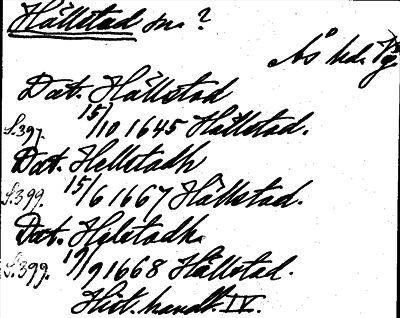 Hällstad sn. ?
Ås hd. Vg
Dat. Hällstad
S.397. 15/10 1645 Hällstad.
Dat. Hellstadh
S.399. 15/6 1667 Hällstad.
Dat. Helstadh
S.399. 19/9 1668 Hällstad.
Hist. handl. IV.